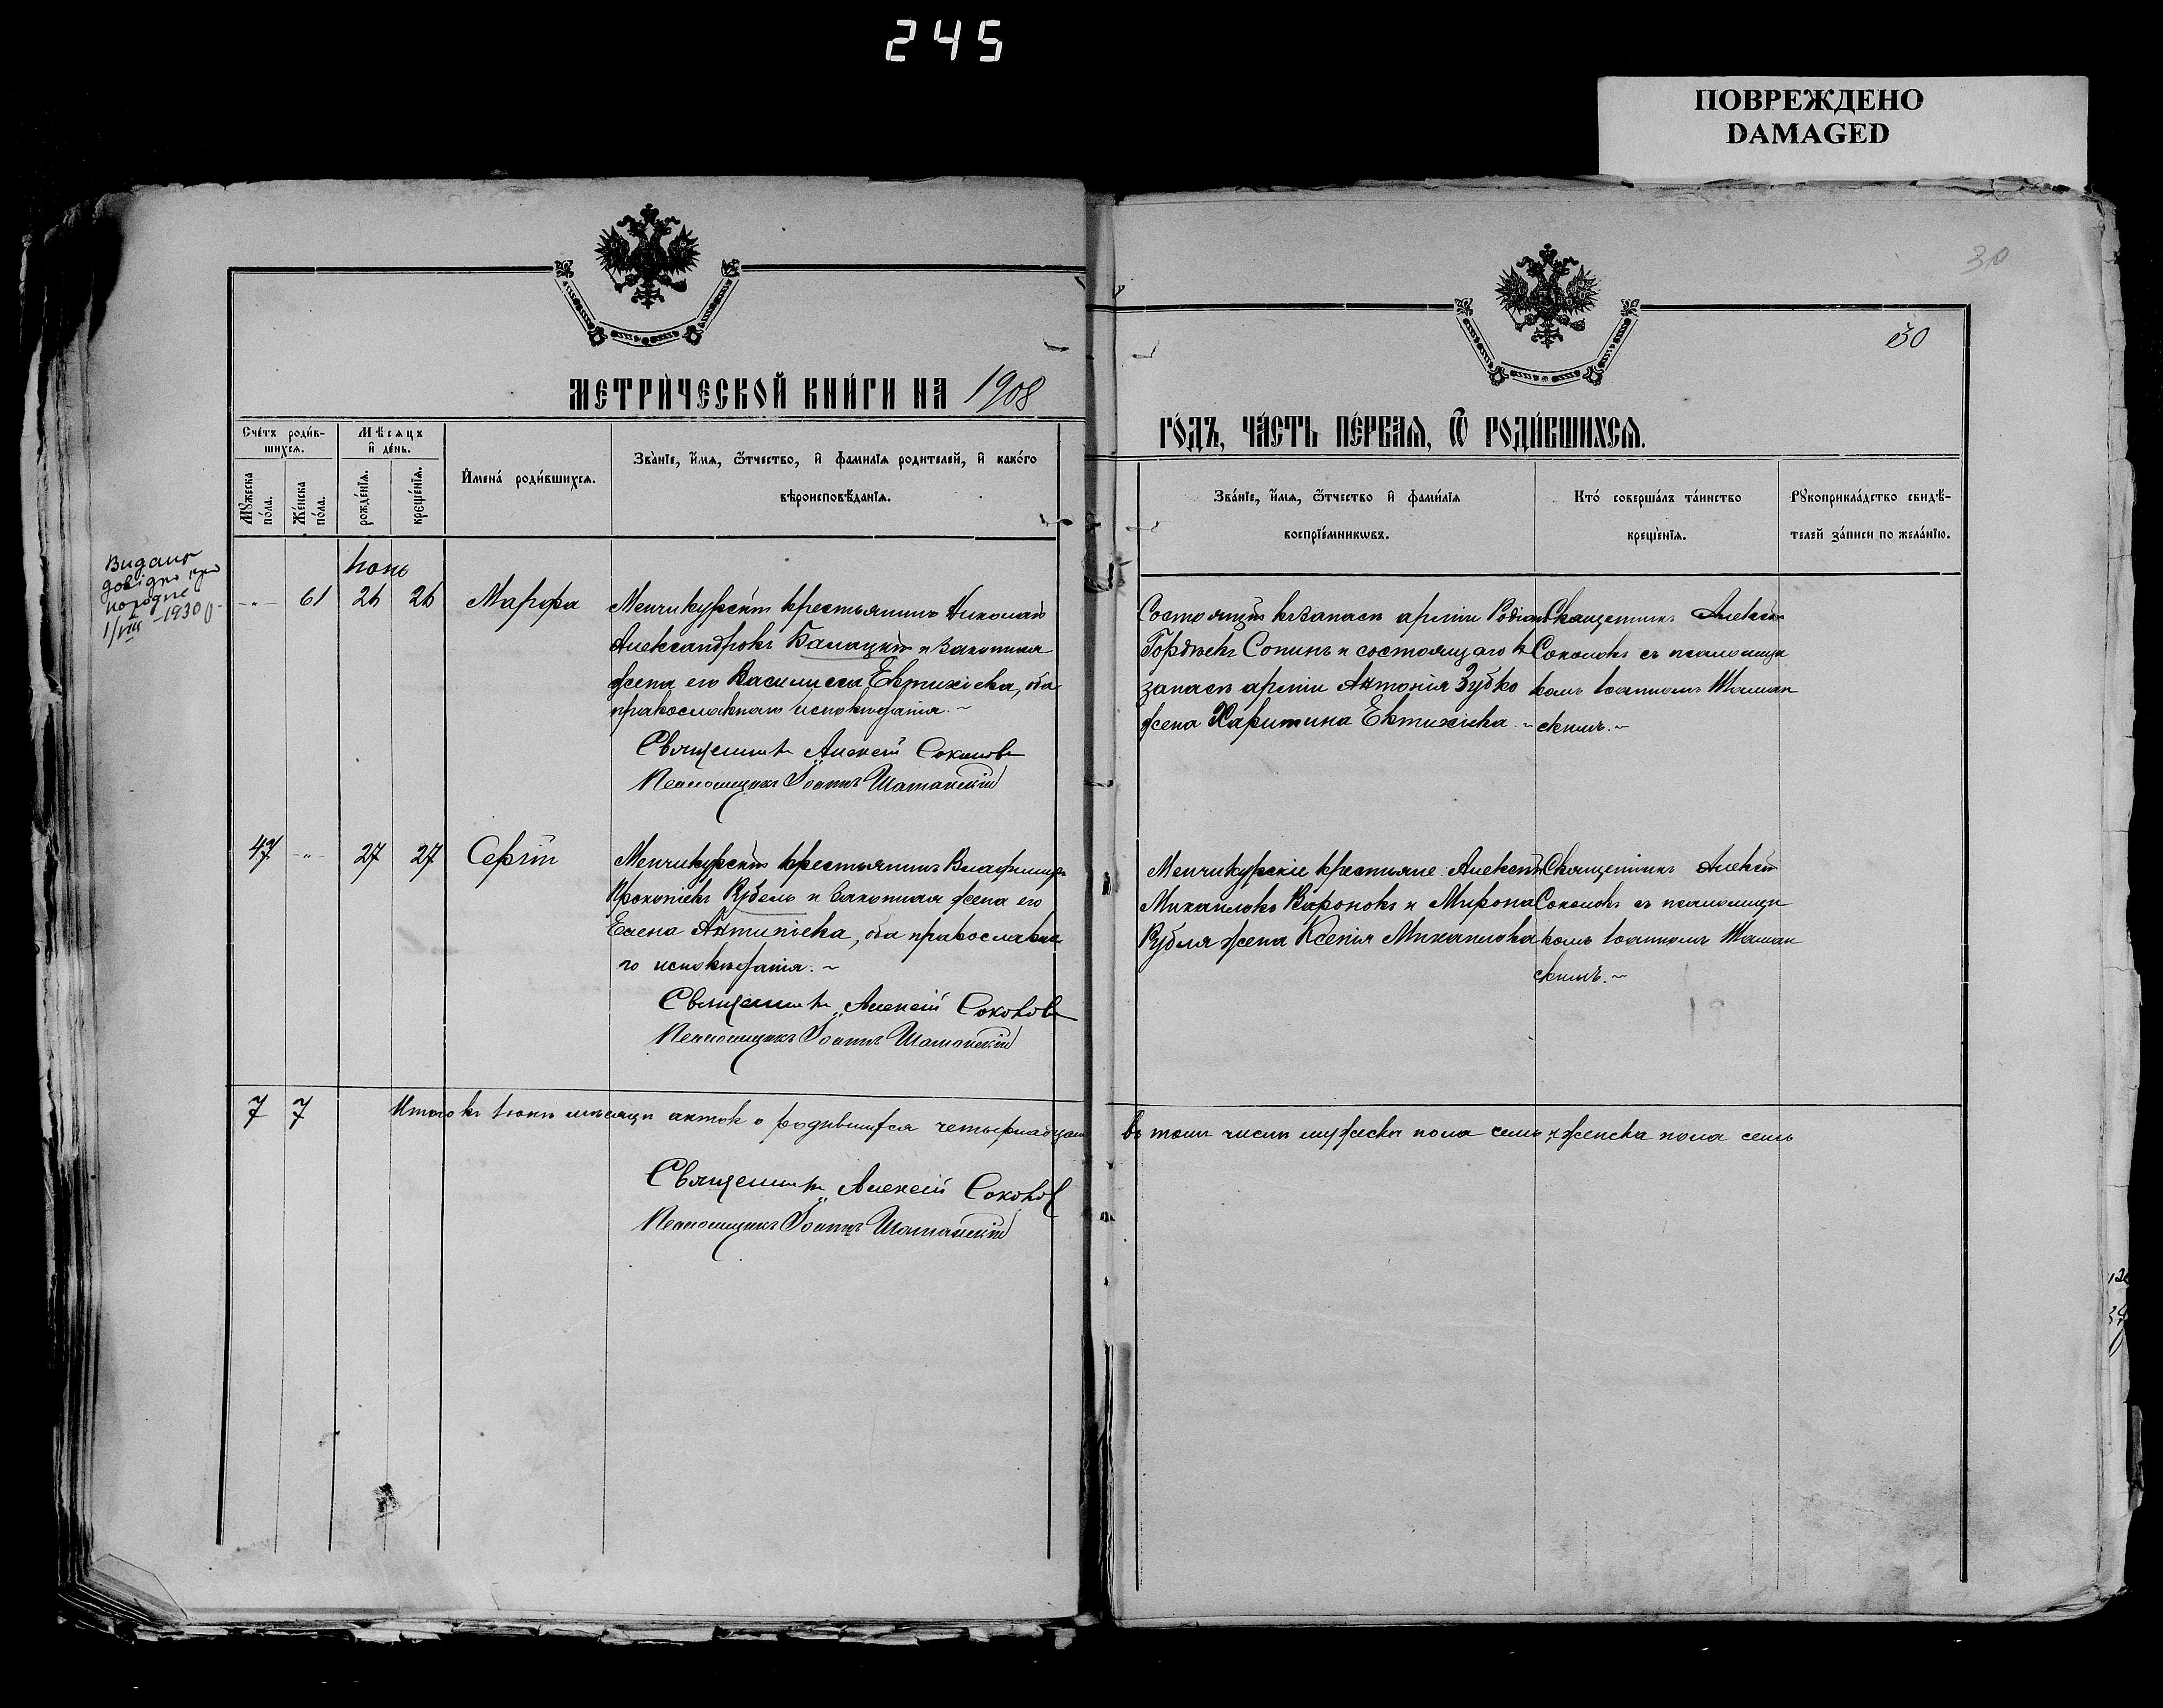 245
ПОВРЕЖДЕНО
DAMAGED
30
30
МЕТРИ́ЧЕСКОЙ КНИ́ГИ НА 1908
ГО́ДЪ, ЧА́СТЬ ПЕ́РВАЯ, Ѿ РОДИ́ВШИХСЯ.
Сче́тъ роди́в-
шихся.
Мѣсяцъ
и де́нь.
Мꙋжеска по́ла.
Же́нска по́ла.
рожде́нїя.
креще́нїя.
Имена́ роди́вшихся.
Зва́нїе, и́мя, ѻ҆́тчество, и фамилїя родителей, и како́го
вѣроисповѣ́данїя.
Зва́нїе, и́мя, ѻ҆́тчество и фами́лїя
воспрїе́мникѡвъ.
Кто́ соверша́лъ та́инство
креще́нїя.
Рꙋкоприкла́дство свидѣ́-
телей за́писи по жела́нїю.
Видано
довідку про
1/VIII – 1930 р.
Іюнь
-"- 61 26 26 Марфа
Менчикурскій крестьянинъ Николай
Александровъ Балацкій и законная
жена его Василисса Евтихіева, оба
православнаго исповѣданія. ~
Священникъ Алексій Соколовъ
Псаломщикъ Іоаннъ Шаманскій
Состоящій въ запасѣ арміи Родіонъ
Гордѣевъ Сопинъ и состоящаго въ
запасѣ арміи Антонія Зубко
жена Харитина Евтихіева. ~
Священникъ Алексій
Соколовъ съ псаломщи
комъ Іоанномъ Шаман
скимъ. ~
47 -"- 27 27 Сергій
Менчикурскій крестьянинъ Владимиръ
Прокопіевъ Кубель и законная жена его
Елена Антипіева, оба православна
го исповѣданія. ~
Священникъ Алексій Соколовъ
Псаломщикъ Іоаннъ Шаманскій
Менчикурскіе крестьяне: Алексѣй
Михаиловъ Вароновъ и Мирона
Кубля жена Ксенія Михаилова
Священникъ Алексій
Соколовъ съ псаломщи
комъ Іоанномъ Шаман
скимъ. ~
7 7 Итого въ Іюнѣ мѣсяцѣ актов о родившихся четырнадцать
въ томъ числѣ мужеска пола семь и женска пола семь
Священникъ Алексій Соколов
Псаломщикъ Іоаннъ Шаманскій